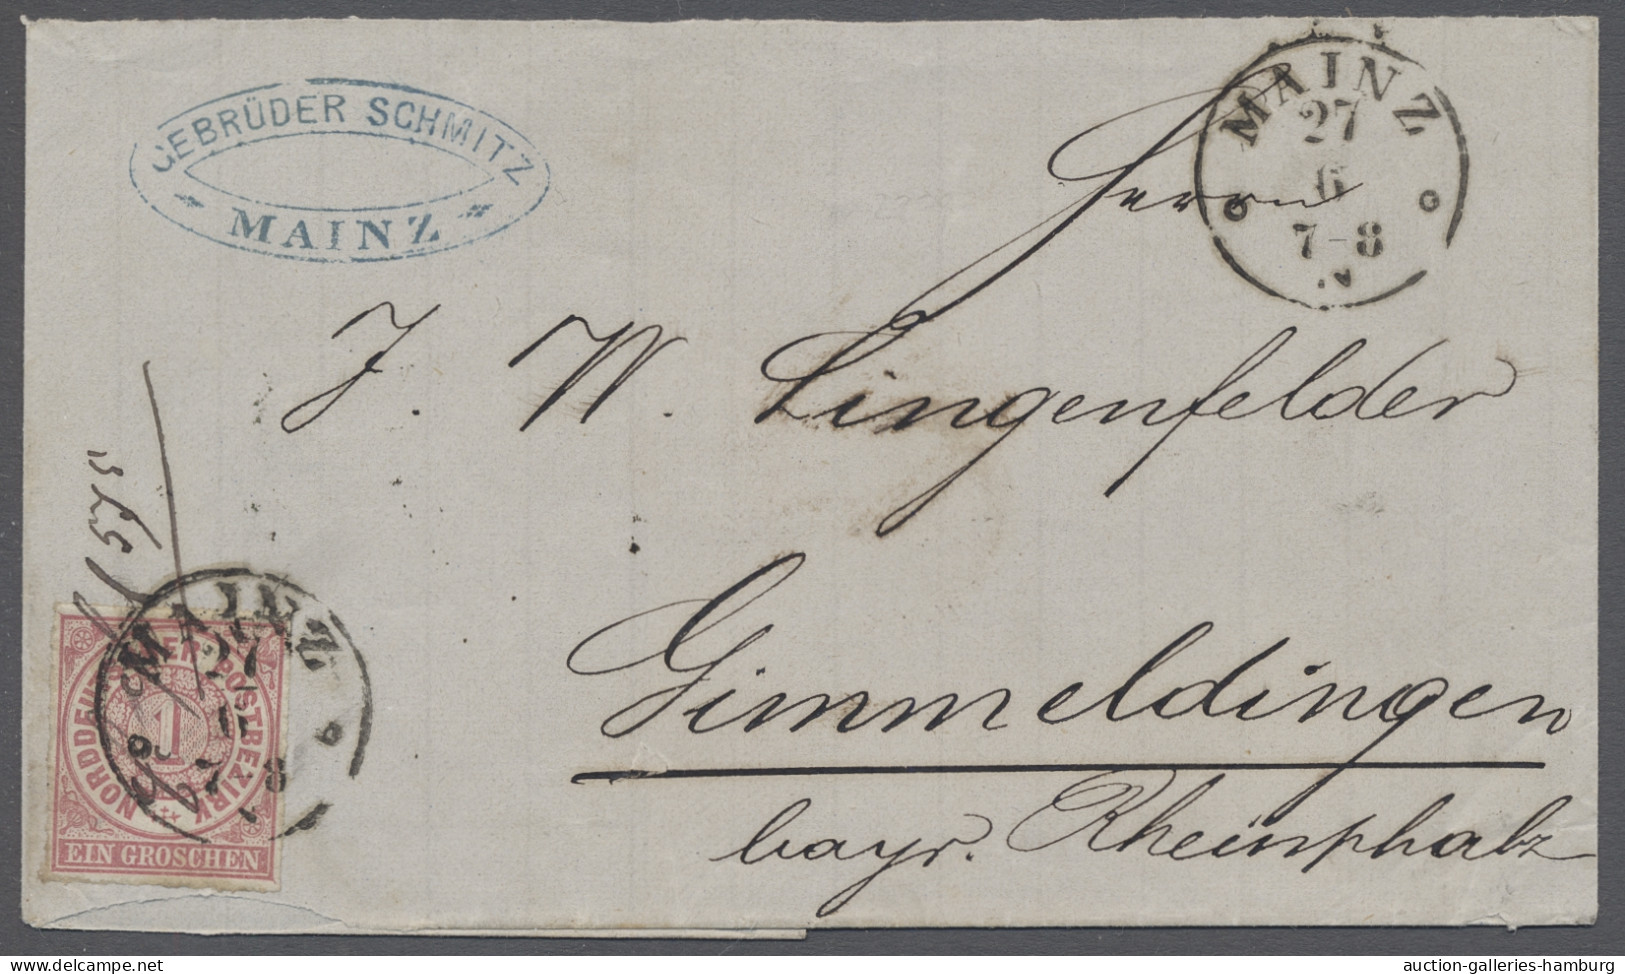 GEBRÜDER SCHMITZ
MAINZ
MAINZ
27
6
7-8
N
Herrn
J. W. Lingenfelder
Gimmeldingen
bayr. Rheinphalz
MAINZ
27
7 8
NORDDEUTSCHER POSTBEZIRK
1
EIN GROSCHEN
auction-galleries-hamburg